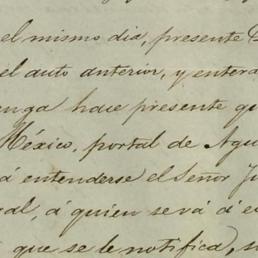 el mismo dia, presente D
el auto anterior, y entera
enga hace presente qu
México, portal de Agu
á entenderse el Señor Ju
al, á quien se vá á e
que se le notifica, s